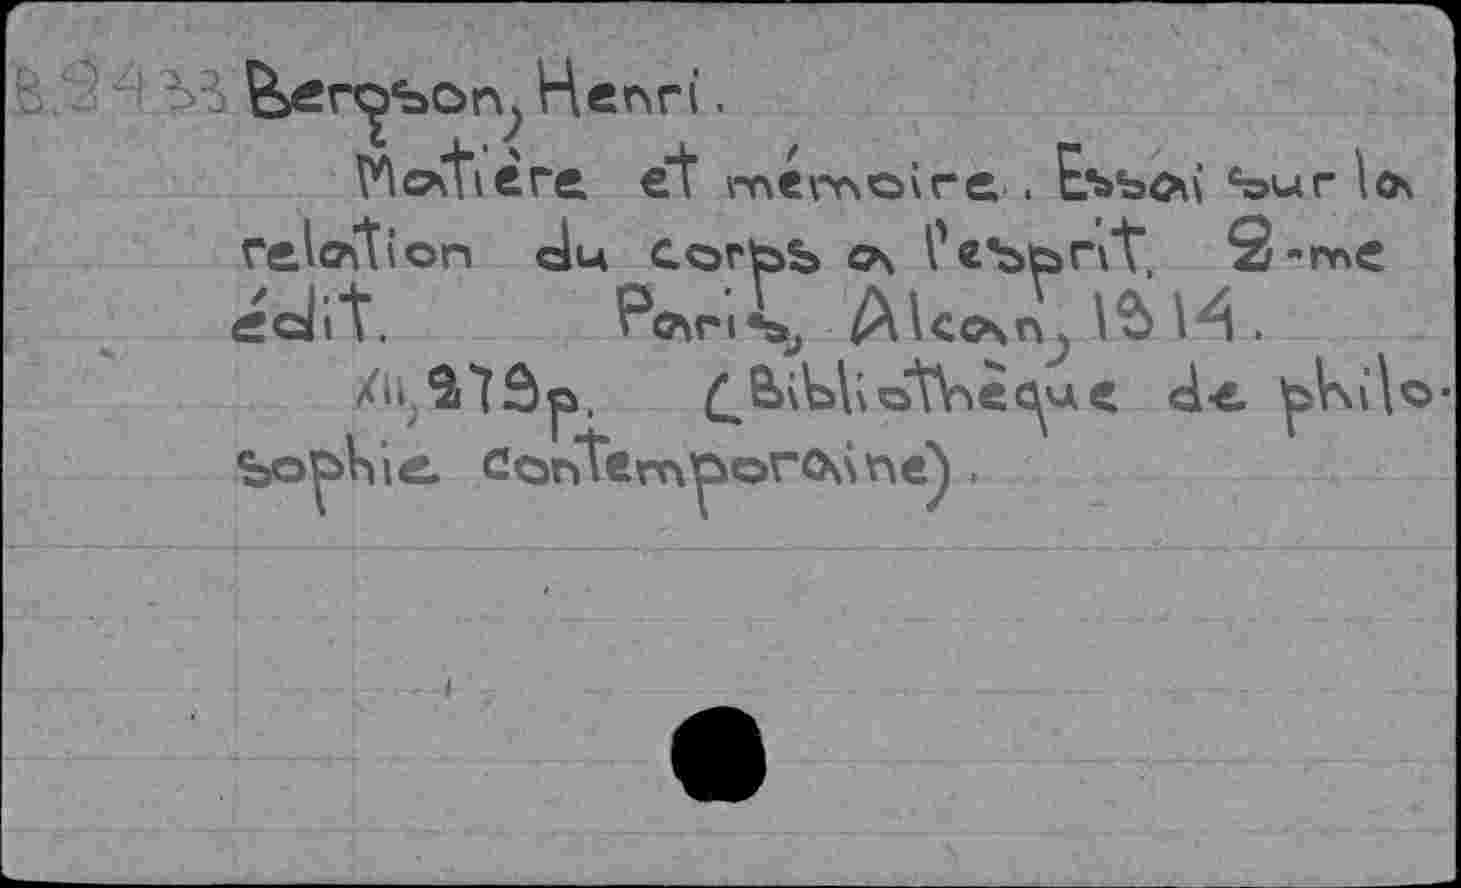 B.9433 Bergson, Henri.
Matière et mémoire. Essai sur la
relation du corps a l'esprit. 2-me
édit. Paris, Alcan, 1914.
XII, 279p. (Bibliothèque de philo-
sophie contemporaine).